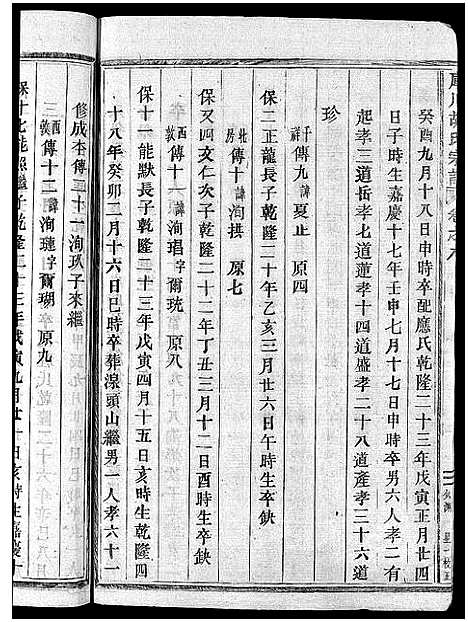 胡氏宗譜 卷之六
癸酉九月十八日申時卒配應氏乾隆二十三年戊寅正月廿四
日子時生嘉慶十七年壬申七月十七日申時卒男六人孝二有
孝三道岳孝七道蓮孝十四道盛孝二十八道產孝三十六道
珍
千祥 傳九 諱夏止 原四
保二正龍長子乾隆二十年乙亥三月廿六日午時生卒缺
北房 傳十 諱洵拱 原七
保又四亥仁次子乾隆二十二年丁丑三月十二日酉時生卒缺
西黃 傳十一 諱洵琩字爾珖 原八
保十一能默長子乾隆二十三年戊寅四月十五日亥時生乾隆四
十八年癸卯二月十六日巳時卒葬湶頭山繼男一人孝六十一
修成 李傳三十一洵玖子來繼
三 西黃 傳十二 諱洵璉字爾瑚 原九
保十七能照繼子乾隆二十三年戊寅九月廿一日亥時生嘉慶十